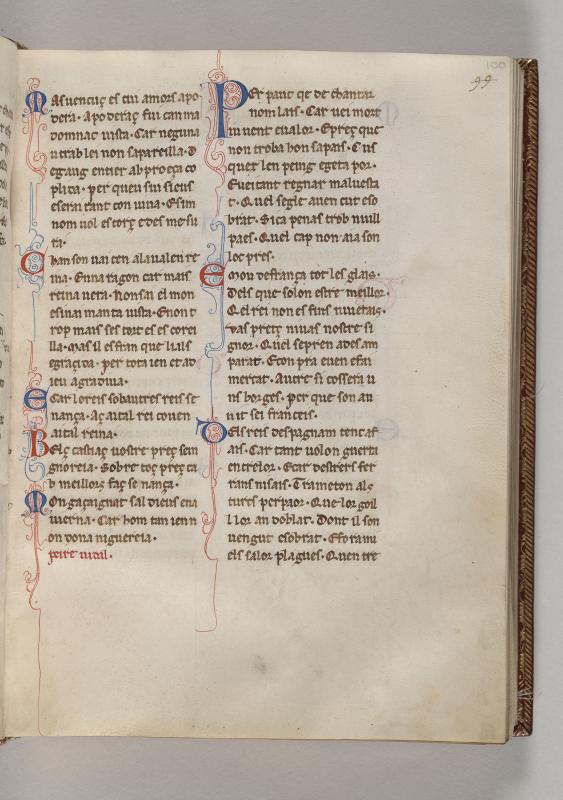 100
99
Mas uencuç es cui amors apo
dera. Apoderaç fui can ma
domnac uista. Car neguna
utrab lei non sapareilla. D
egang entier ab proeça co
plida. per queu sui sieus
eserai tant con uiua. Esim
nom uol es torç edes mesu
ra.
Chanson uai ten alaualen re
ina. Enna ragon car mais
reina uera. Non sai el mon
esinai manta uista. Enon t
rop mais ses tort es es corei
lla. Mas il es fran que lials
egraçida. per tota ien et ad
ieu agradiua.
E car lo reis sobautres reis se
nança. Aç aital rei couen
aital reina.
Belç castiaç uostre preç sein
gnoreia. Sobre toç preç ca
b meillorç faç se nança.
Mon gaçaignat sal dieus ena
uierna. Car hom tan ien n
on dona niguereia.
peire uidal.
Per pauc qe de chantar
nom lais. Car uei mort
iuuent eualor. Epreç que
non troba hon sapais. Cus
quec len peing egeta por.
Eueitant regnar maluesta
t. Quel segle auen cut eso
brat. Si ca penas trob nuill
paes. Quel cap non aia son
loc pres.
E mou defrança tot les glais.
Dels que solon estre meillor.
Qel rei non es fins niuerais.
uas pretç niuas nostre si
gnor. Quel sepren ades am
parat. Econ pra euen efai
mercat. Autre si cossera u
ns borges. per que son au
nit sei frances.
Dels reis despagnam tencaf
ais. Car tant uolon guerra
entrelor. Ecar destrers fer
rans nisais. Trameton als
turcs per paor. Que lor goil
l lor an doblat. Dont il son
uengut esobrat. Efora mi
els salor plagues. Quentre